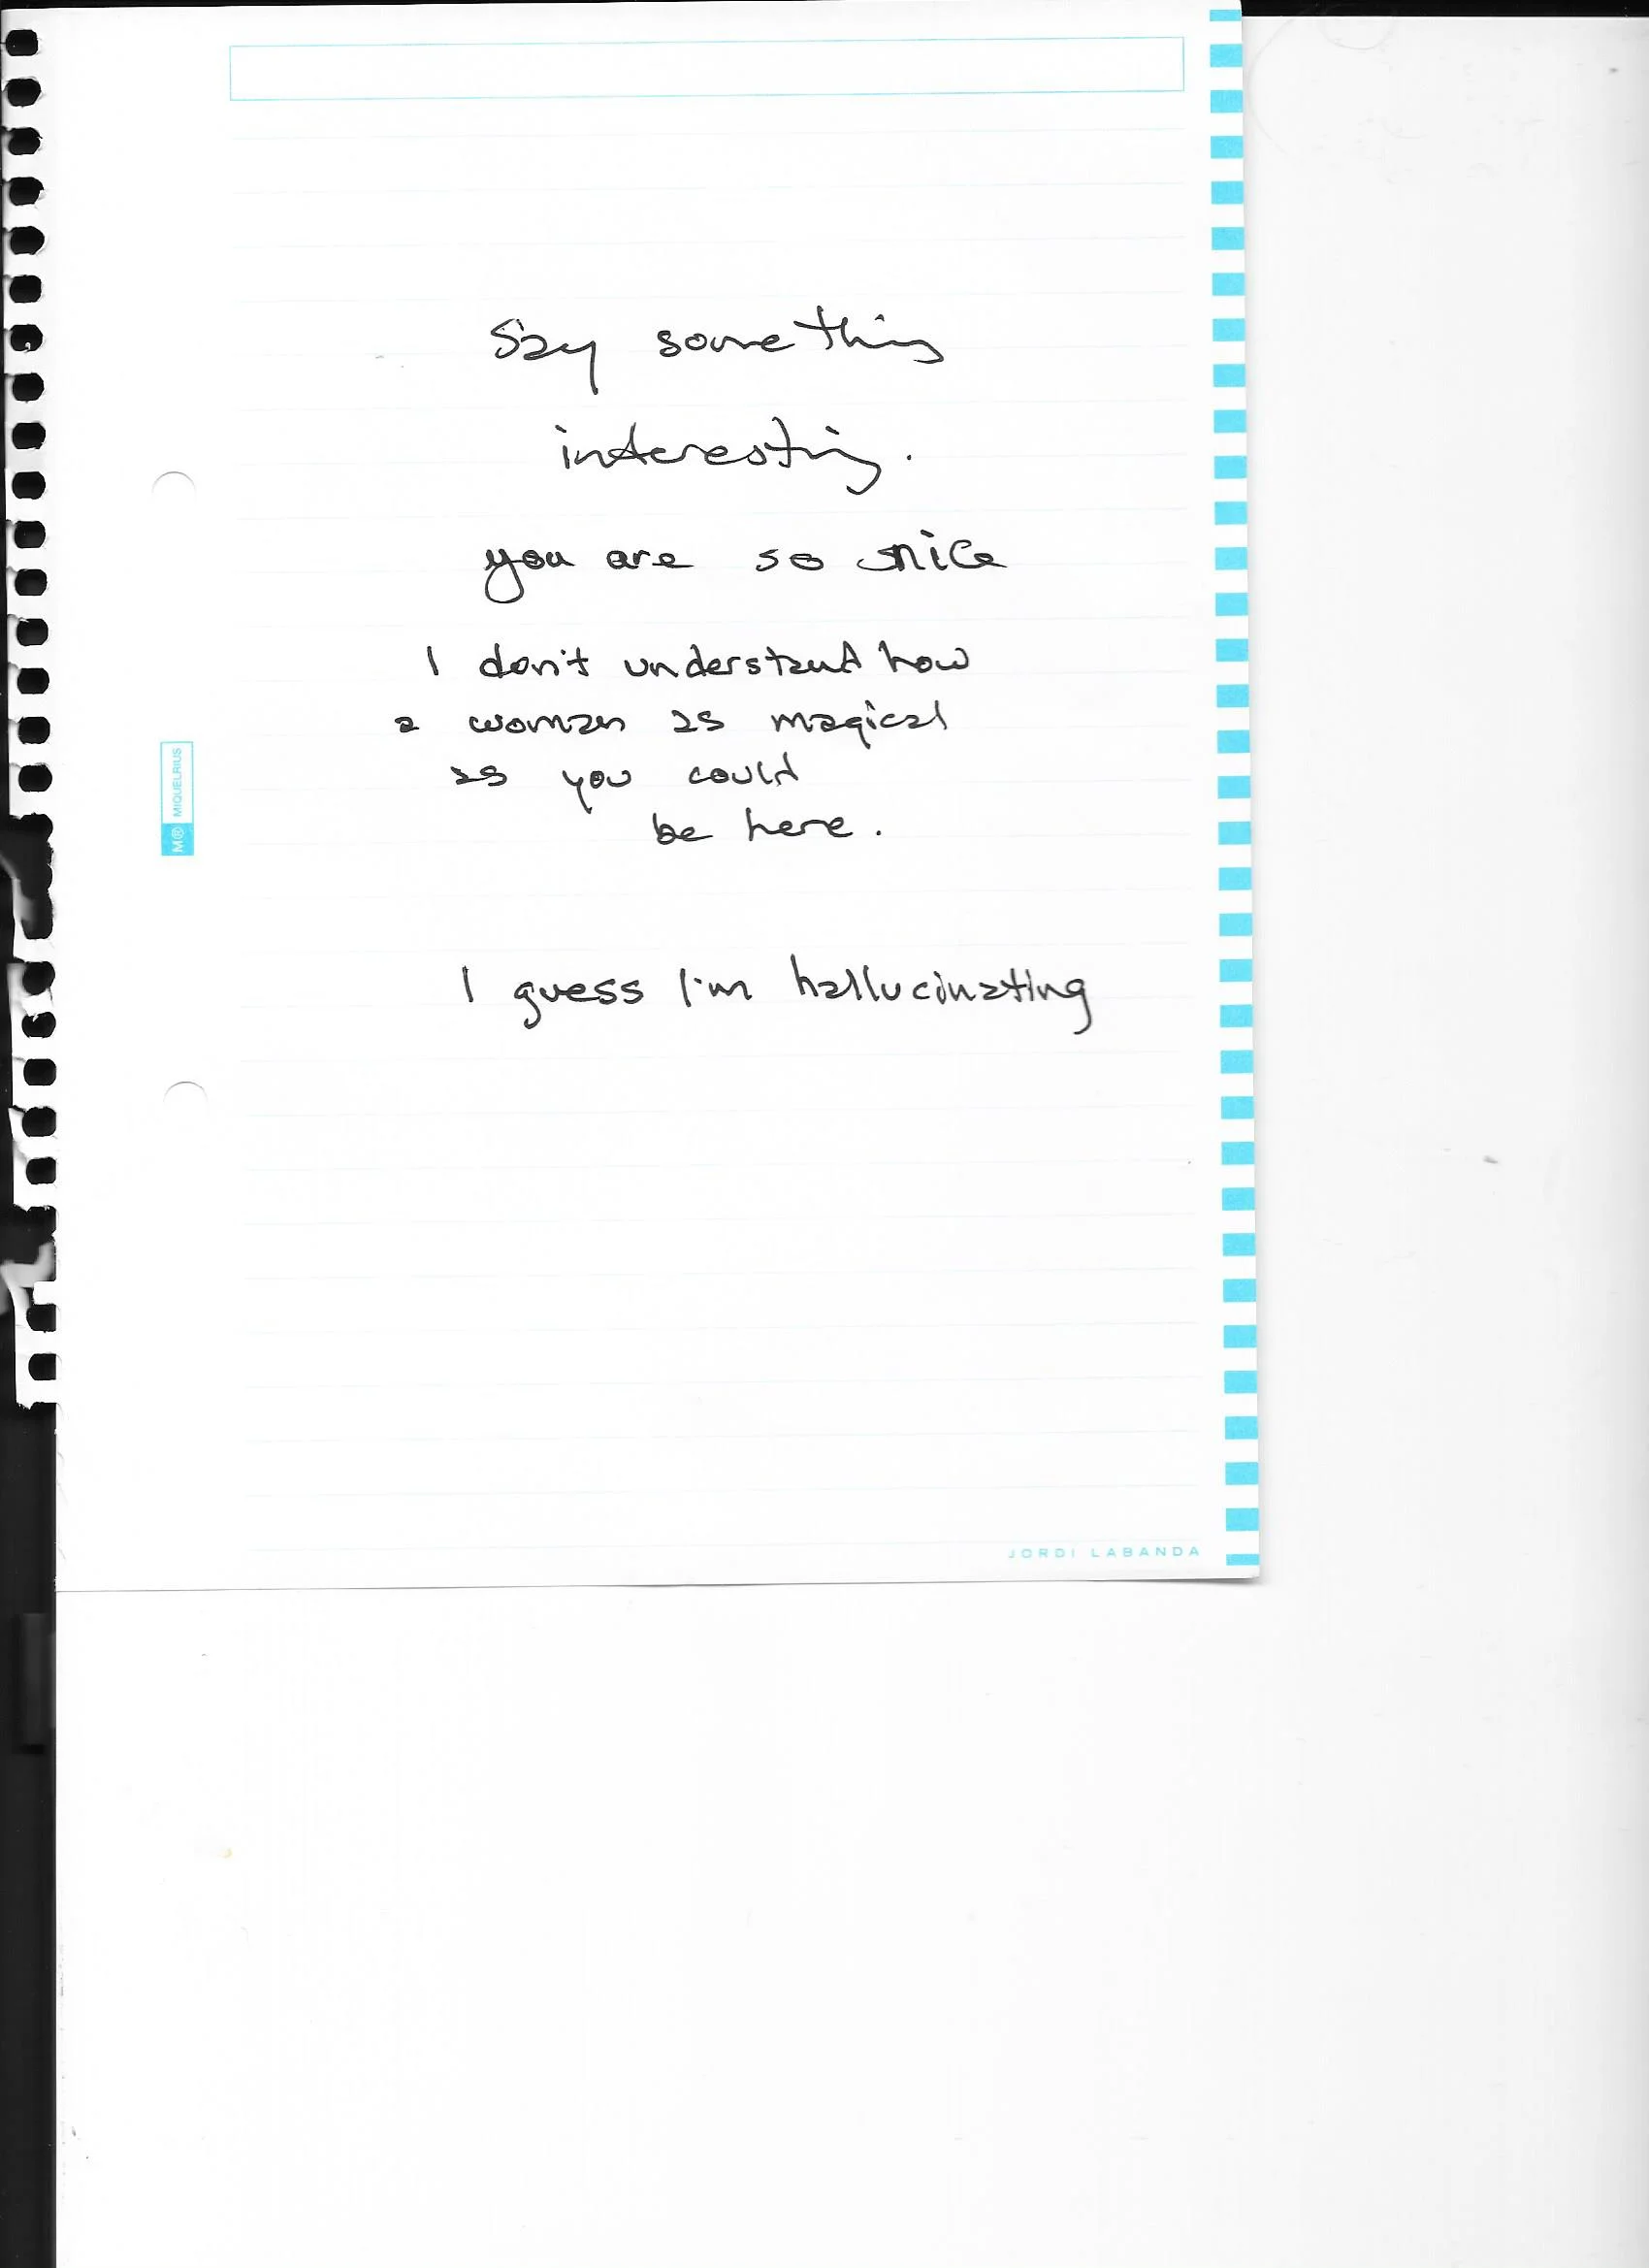 Say something
interesting.
you are so nice
I don't understand how
a woman as magical
as you could
be here.
I guess I'm hallucinating
M® MIQUELRIUS
JORDI LABANDA